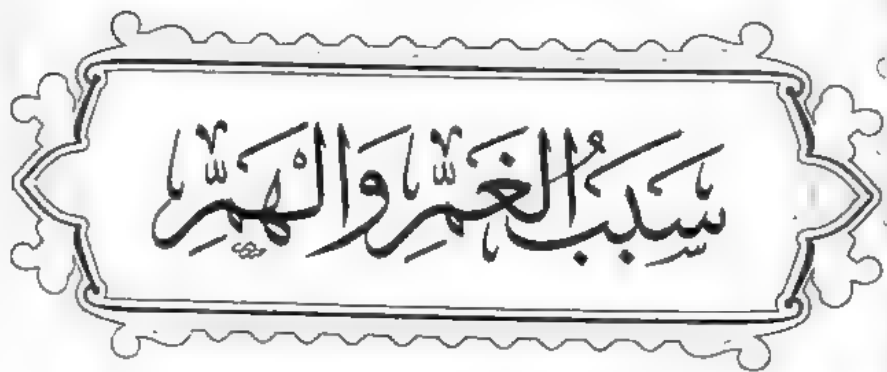 سَبَبُ الْغَمِّ وَالْهَمِّ